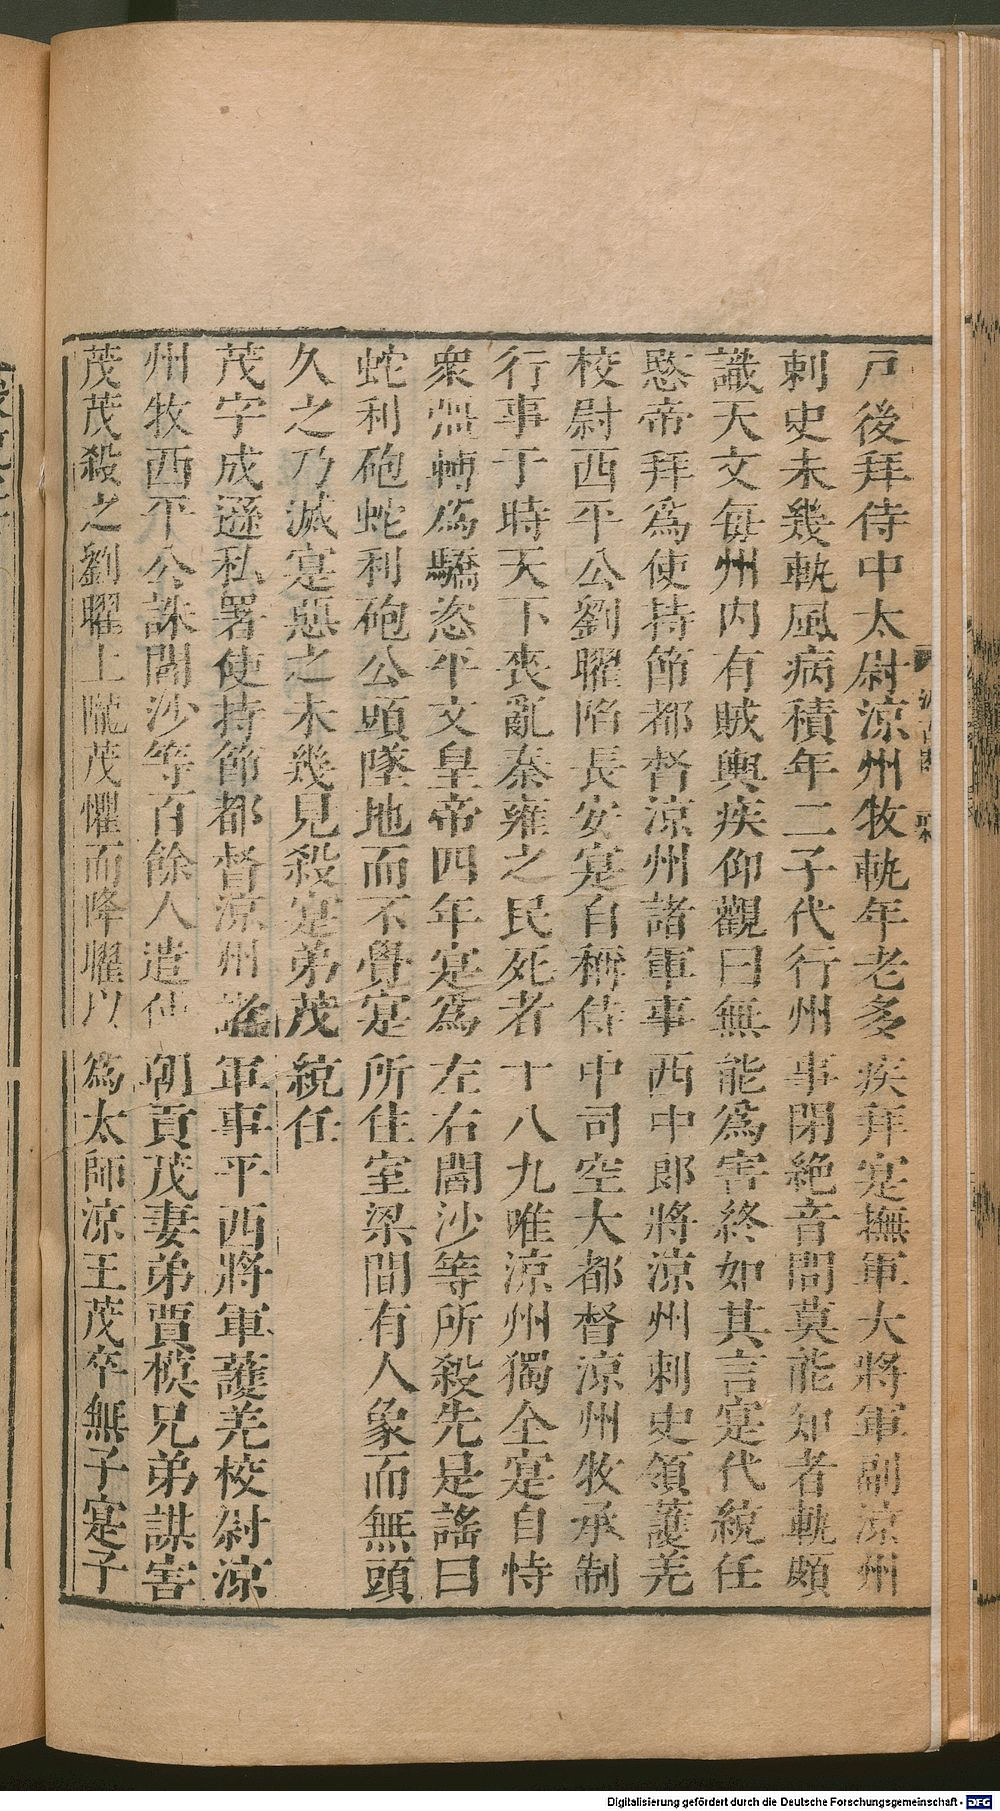 戸後拜侍中太尉涼州牧軌年老多疾拜寔撫軍大將軍副涼州
刺史未幾軌風病積年二子代行州事閉絶音問莫能知者軌頗
識天文每州内有賊輿疾仰觀曰無能爲害終如其言寔代統任
愍帝拜爲使持節都督涼州諸軍事西中郎將涼州刺史領護羌
校尉西平公劉曜陷長安寔自稱侍中司空大都督涼州牧承制
行事于時天下喪亂秦雍之民死者十八九唯涼州獨全寔自恃
衆強轉爲驕恣平文皇帝四年寔爲左右閻沙等所殺先是謠曰
蛇利砲蛇利砲公頭墜地而不覺寔所住室梁間有人象而無頭
久之乃滅寔惡之未幾見殺寔弟茂統任
茂字成遜私署使持節都督涼州諸軍事平西將軍護羌校尉涼
州牧西平公誅閻沙等百餘人遣使朝貢茂妻弟賈模兄弟謀害
茂茂殺之劉曜上隴茂懼而降曜以爲太師涼王茂卒無子寔子
Digitalisierung gefördert durch die Deutsche Forschungsgemeinschaft - DFG